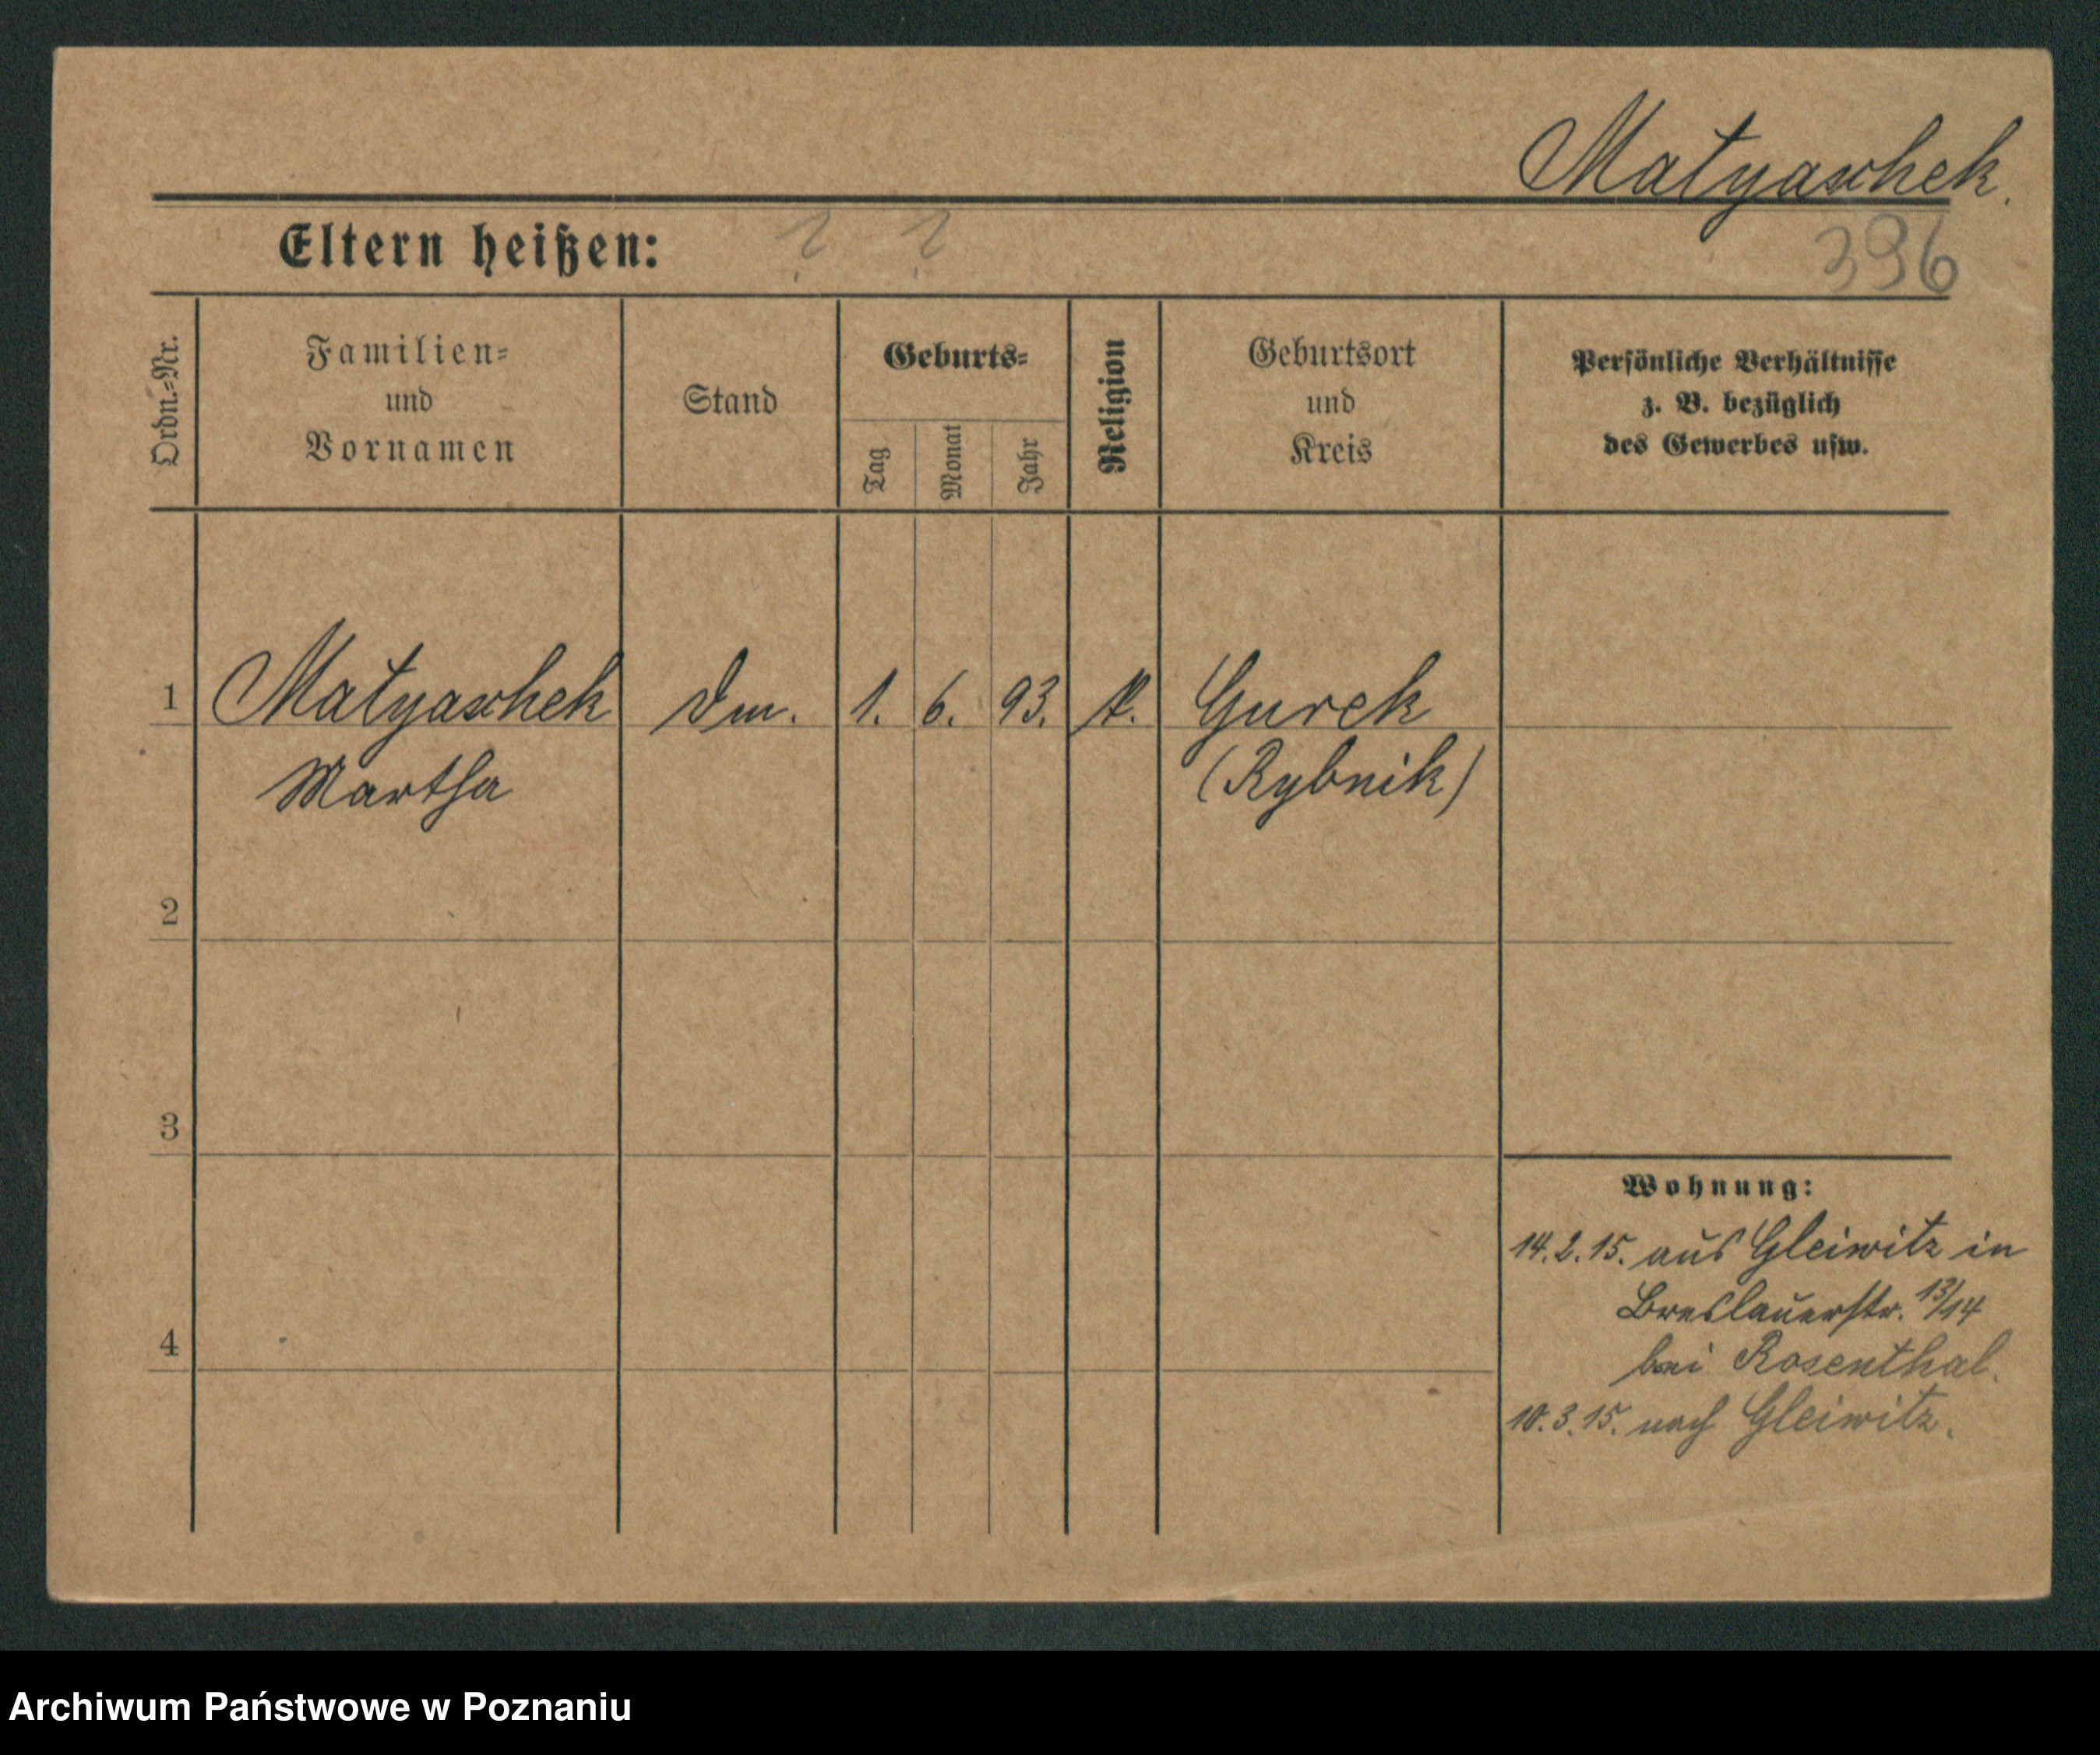 Matyaschek.
Eltern heißen: ? ?
396
Ordn.-Nr.
Familien-
und
Vornamen
Stand
Geburts-
Tag
Monat
Jahr
Religion
Geburtsort
und
Kreis
Persönliche Verhältnisse
z. B. bezüglich
des Gewerbes usw.
1 Matyaschek 1. 6. 93. k. Gurek
Martha (Rybnik)
2
3
Wohnung:
14.2.15. aus Gleiwitz in
Breslauerstr. 13/14
4
bei Rosenthal.
10.3.15. nach Gleiwitz.
Archiwum Państwowe w Poznaniu